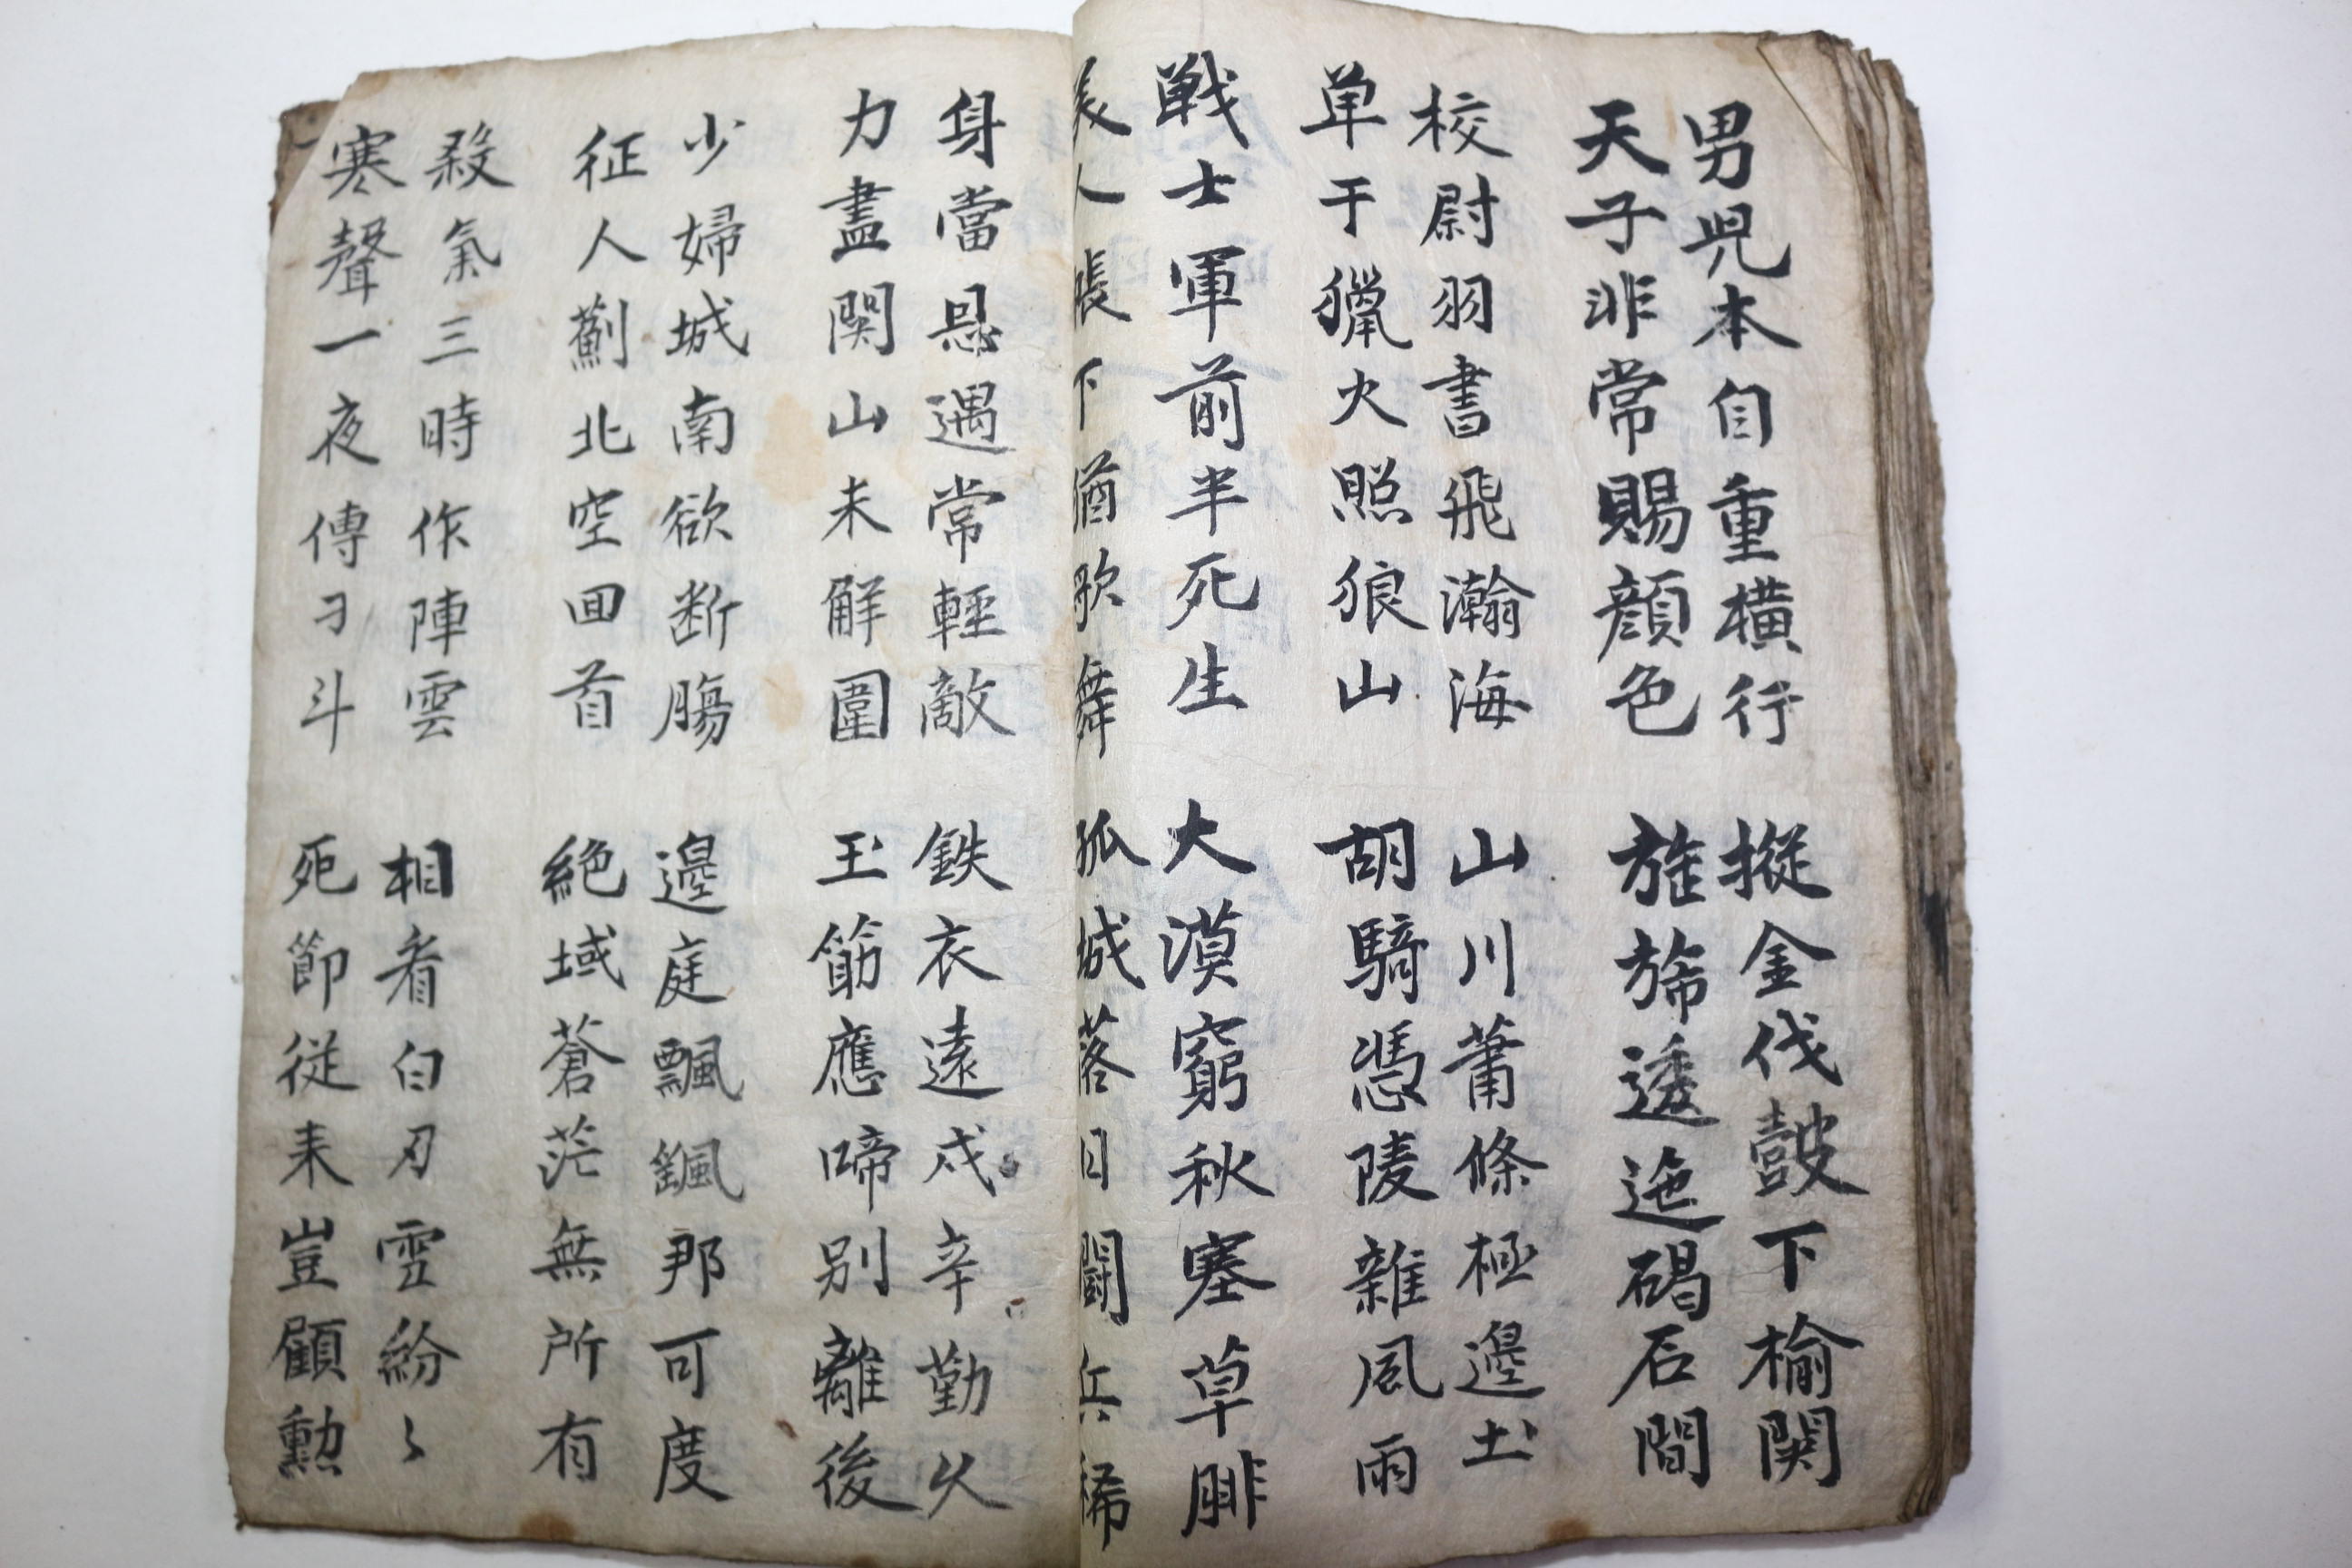 男兒本自重横行　摐金伐皷下榆関
天子非常賜顔色　旌旆逶迤碣石間
校尉羽書飛瀚海　山川蕭條極邊土
単于獵火照狼山　胡騎憑陵雜風雨
戦士軍前半死生　大漠窮秋塞草腓
美人帳下猶歌舞　孤城落日鬪兵稀
身當恩遇常輕敵　鉄衣遠戍辛勤久
力盡関山未解圍　玉筯應啼別離後
少婦城南欲断腸　邊庭飄颻那可度
征人薊北空回首　絶域蒼茫無所有
殺氣三時作陣雲　相看白刃雪紛〻
寒聲一夜傳刁斗　死節従来豈顧勲